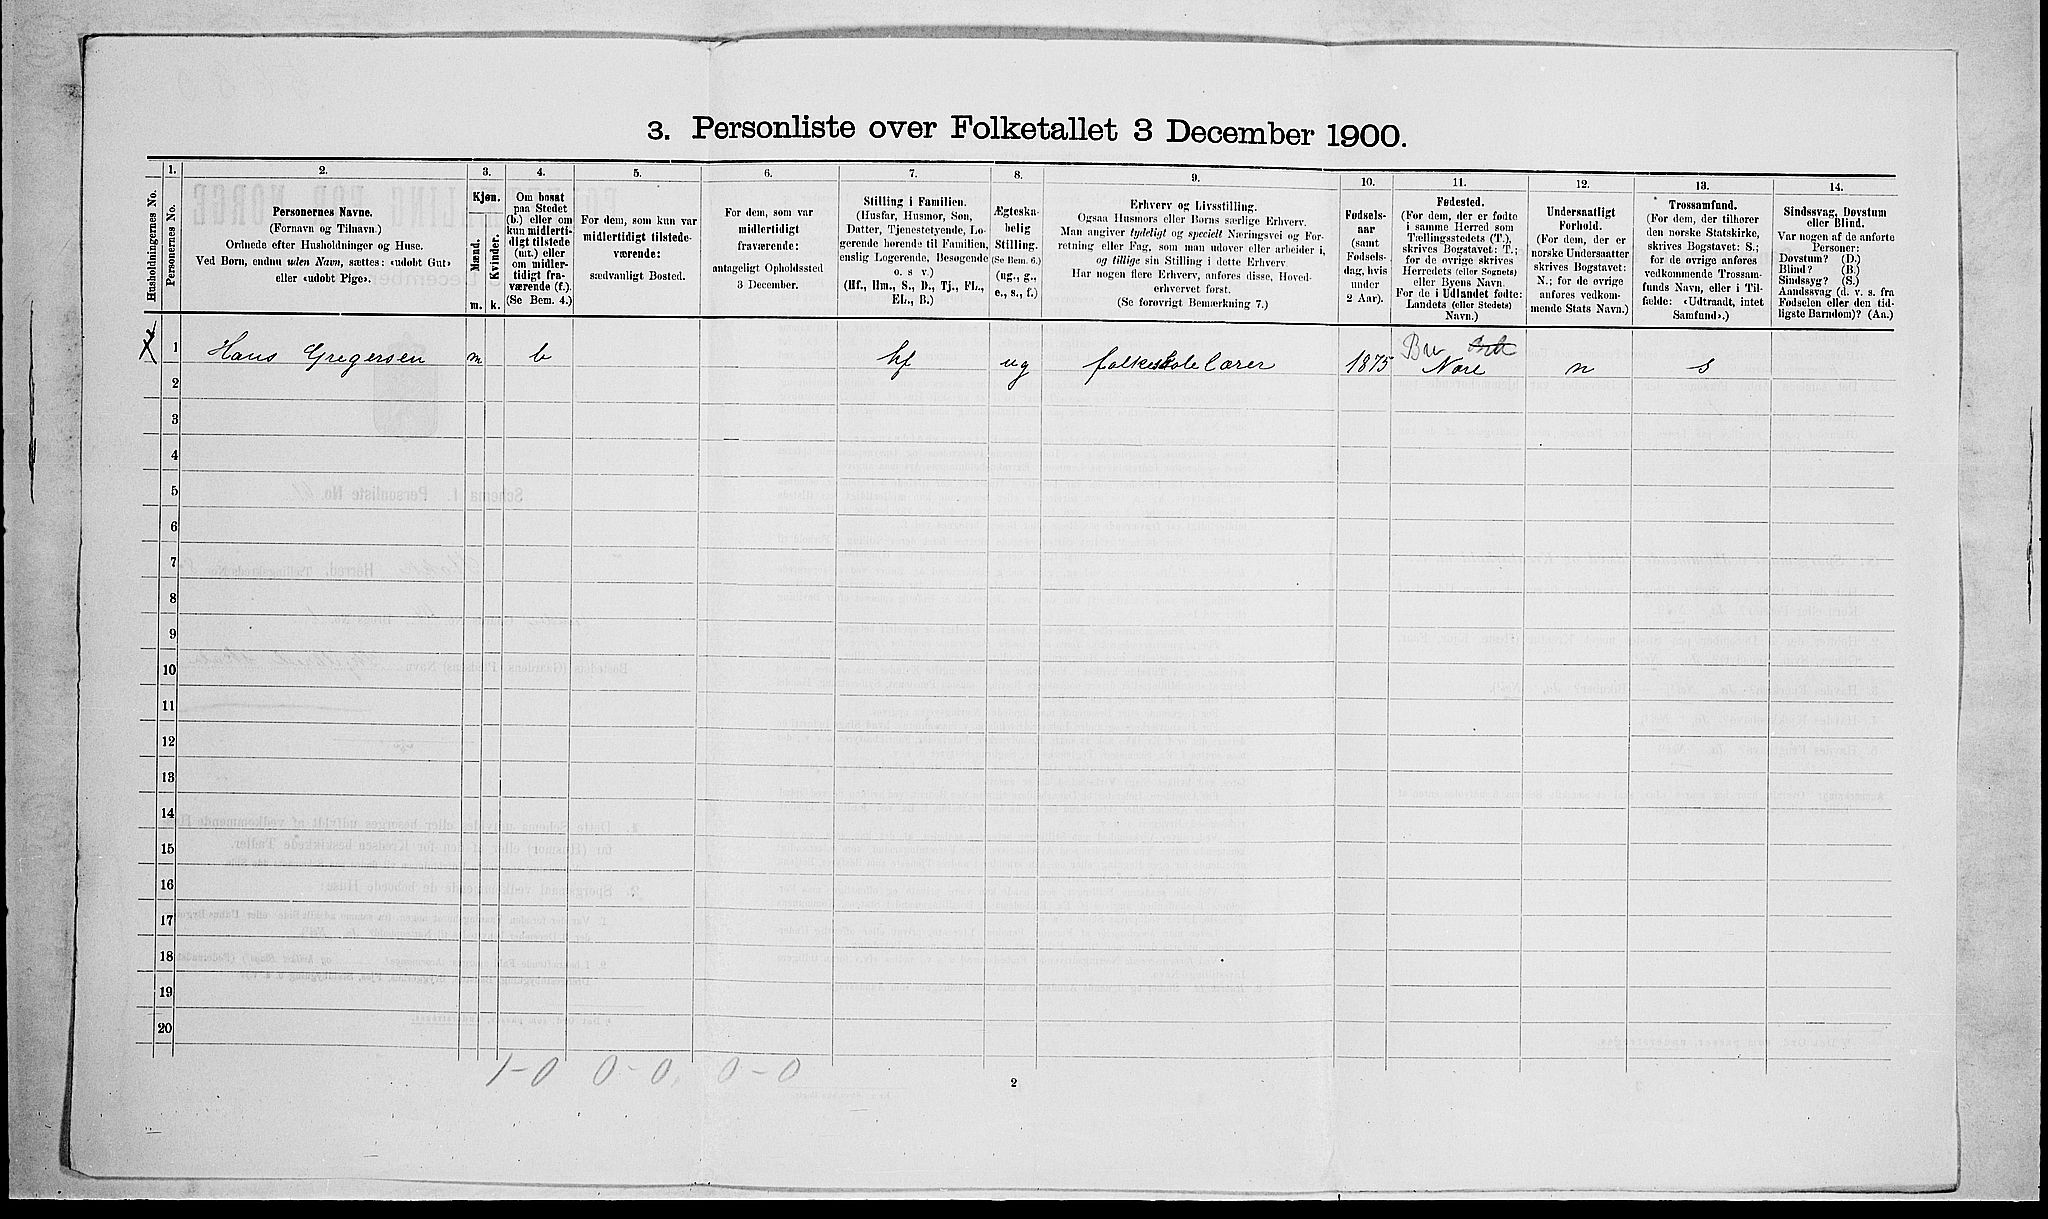 3. Personliste over Folketallet 3 December 1900.
1. 2. 3. 4. 5. 6. 7. 8. 9. 10. 11. 12. 13. 14.
Husholdningernes No.
Personernes No.
Personernes Navne.
(Fornavn og Tilnavn.)
Ordnede efter Husholdninger og Huse.
Ved Børn, endnu uden Navn, sættes: «udøbt Gut»
eller «udøbt Pige».
Kjøn.
Mænd.
Kvinder.
m. k.
Om bosat
paa Stedet
(b.) eller om
kun midlerti-
digt tilstede
(mt.) eller
om midler-
tidigt fra-
værende (f.).
(Se Bem. 4.)
For dem, som kun var
midlertidigt tilstede-
værende:
sædvanligt Bosted.
For dem, som var
midlertidigt
fraværende:
antageligt Opholdssted
3 December.
Stilling i Familien.
(Husfar, Husmor, Søn,
Datter, Tjenestetyende, Lo-
gerende hørende til Familien,
enslig Logerende, Besøgende
o. s v.)
(Hf., Hm., S., D., Tj., FL.,
EL., B.)
Ægteska-
belig
Stilling.
(Se Bem. 6.)
(ug., g.,
e., s., f.)
Erhverv og Livsstilling.
Ogsaa Husmors eller Børns særlige Erhverv.
Man angiver tydeligt og specielt Næringsvei og For-
retning eller Fag, som man udøver eller arbeider i,
og tillige sin Stilling i dette Erhverv
Har nogen flere Erhverv, anføres disse, Hoved-
erhvervet først.
(Se forøvrigt Bemærkning 7.)
Fødsels-
aar
(samt
Fødsels-
dag, hvis
under
2 Aar).
Fødested.
(For dem, der er fødte
i samme Herred som
Tællingsstedets (T.),
skrives Bogstavet: T.;
for de øvrige skrives
Herredets (eller Sognets)
eller Byens Navn.
For de i Udlandet fødte:
Landets (eller Stedets)
Navn.)
Undersaatligt
Forhold.
(For dem, der er
norske Undersaatter
skrives Bogstavet:
N.; for de øvrige
anføres vedkom-
mende Stats Navn.)
Trossamfund.
(For dem, der tilhører
den norske Statskirke,
skrives Bogstavet: S.;
for de øvrige anføres
vedkommende Trossam-
funds Navn, eller i Til-
fælde: «Udtraadt, intet
Samfund».)
Sindssvag, Døvstum
eller Blind.
Var nogen af de anførte
Personer:
Døvstum? (D.)
Blind? (B.)
Sindssyg? (S.)
Aandssvag (d. v. s. fra
Fødselen eller den tid-
ligste Barndom)? (Aa.)
1 Hans Gregersen m b hf ug folkeskolelærer 1875 Nore n s
2
3
4
5
6
7
8
9
10
11
12
13
14
15
16
17
18
19
20
1-0 0-0. 0-0
2